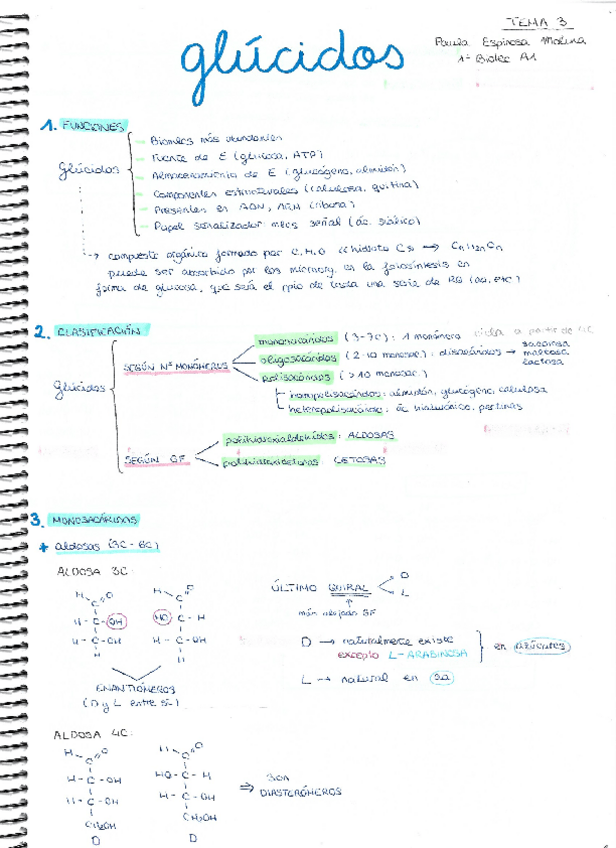 TEMA 3
glúcidos
Paula Espinosa Molina
1º Biotec A1
1. FUNCIONES
Glúcidos
- Biomcs más abundantes
- Fuente de E (glucosa, ATP)
- Almacenamiento de E (glucógeno, almidón)
- Componentes estructurales (celulosa, quitina)
- Presentes en ADN, ARN (ribosa)
- Papel señalizador mcs señal (ác. siálico)
→ compuesto orgánico formado por C, H, O
puede ser absorbido por los microorg. en la fotosíntesis en
forma de glucosa, que será el ppio de toda una serie de
2. CLASIFICACIÓN
Glúcidos
SEGÚN Nº MONÓMEROS
monosacáridos (3-7C): 1 monómero cicla a partir de
oligosacáridos (2-10 monosac): disacáridos → sacarosa
maltosa
lactosa
polisacáridos (>10 monosac)
homopolisacáridos: almidón, glucógeno, celulosa
heteropolisacárido: ác hialurónico, pectinas
SEGÚN GF
polihidroxialdehídos: ALDOSAS
polihidroxicetonas: CETOSAS
3. MONOSACÁRIDOS
+ aldosas (3C-6C)
ALDOSA 3C:
H O
C
H - C - OH
H - C - OH
H
H O
C
HO C - H
H - C - OH
H
ENANTIÓMEROS
(D y L entre sí)
ÚLTIMO QUIRAL
D
L
más alejado GF
D → naturalmente existe
excepto L-ARABINOSA
en azúcares
L → natural en aa
ALDOSA 4C:
H O
C
H - C - OH
H - C - OH
CH₂OH
D
H O
C
HO - C - H
H - C - OH
CH₂OH
D
⇒ SON
DIASTERÓMEROS